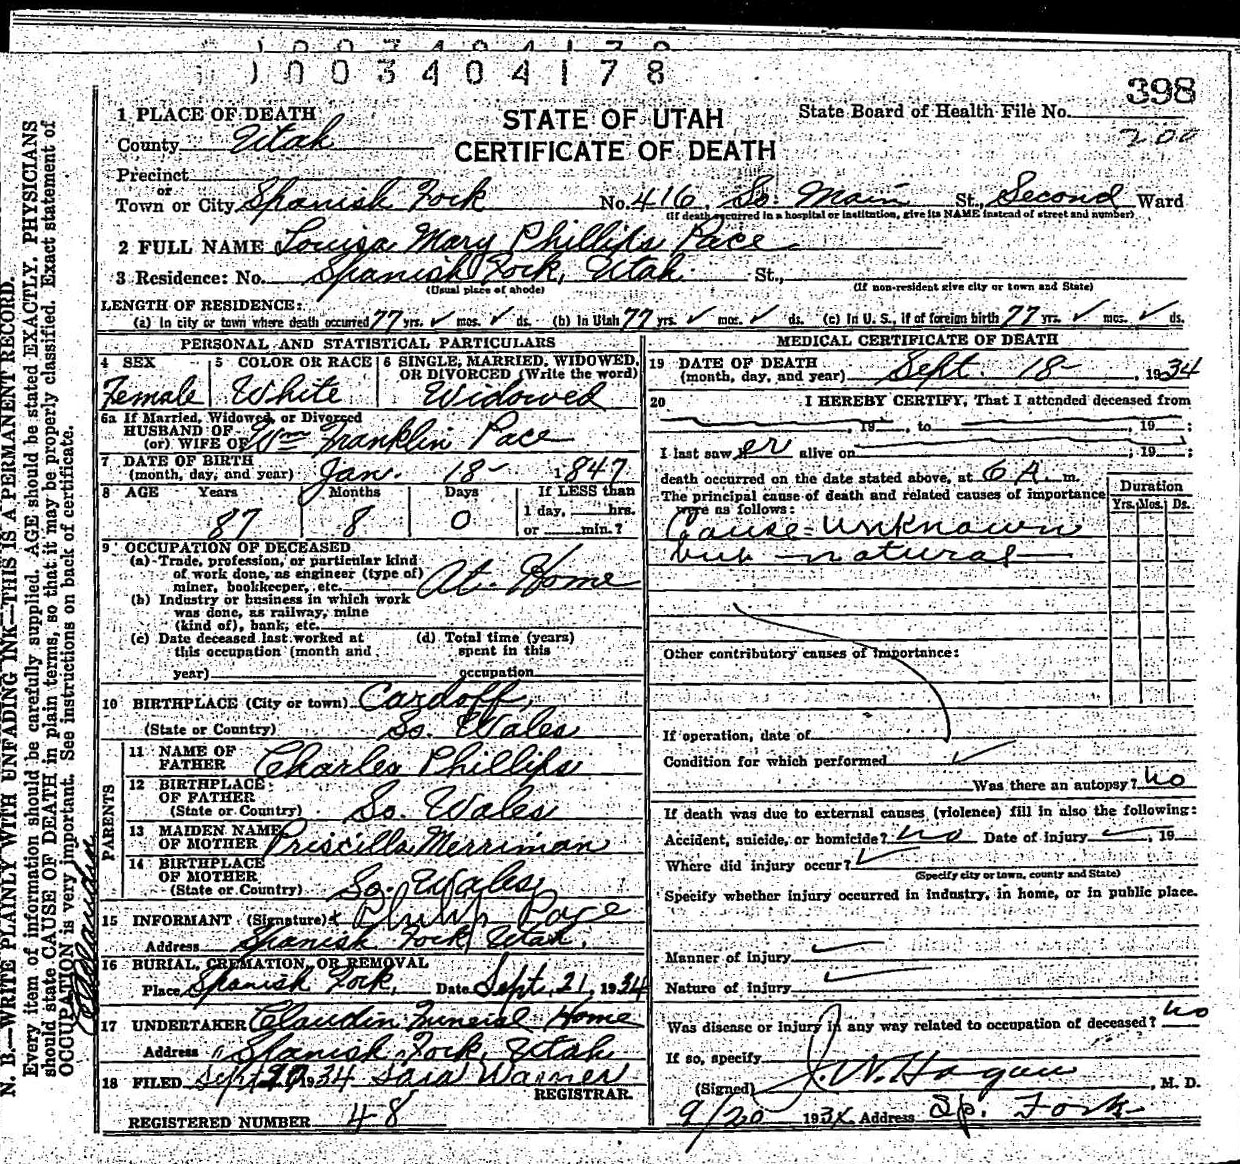 1003404178
398
1 PLACE OF DEATH
STATE OF UTAH
State Board of Health File No.
200
County Utah
CERTIFICATE OF DEATH
Precinct
or
Town or City Spanish Fork No. 416 So. Main St., Second Ward
(If death occurred in a hospital or institution, give its NAME instead of street and number)
2 FULL NAME Louisa Mary Phillips Pace
3 Residence: No. Spanish Fork, Utah St.,
(Usual place of abode) (If non-resident give city or town and State)
LENGTH OF RESIDENCE:
(a) In city or town where death occurred 77 yrs. ✓ mos. ✓ ds. (b) In Utah 77 yrs. ✓ mos. ✓ ds. (c) In U. S., if of foreign birth 77 yrs. ✓ mos. ✓ ds.
PERSONAL AND STATISTICAL PARTICULARS
4 SEX Female
5 COLOR OR RACE White
6 SINGLE, MARRIED, WIDOWED, OR DIVORCED (Write the word)
Widowed
6a If Married, Widowed, or Divorced
HUSBAND OF
(or) WIFE OF Wm Franklin Pace
7 DATE OF BIRTH
(month, day, and year) Jan. 18- 1847
8 AGE Years Months Days If LESS than
1 day, hrs.
87 8 0 or min.?
9 OCCUPATION OF DECEASED
(a) Trade, profession, or particular kind
of work done, as engineer (type of)
miner, bookkeeper, etc. At Home
(b) Industry or business in which work
was done, as railway, mine
(kind of), bank, etc.
(c) Date deceased last worked at
this occupation (month and
year)
(d) Total time (years)
spent in this
occupation
10 BIRTHPLACE (City or town) Cardoff,
(State or Country) So. Wales
PARENTS
11 NAME OF
FATHER Charles Phillips
12 BIRTHPLACE
OF FATHER
(State or Country) So. Wales
13 MAIDEN NAME
OF MOTHER Priscilla Merriman
14 BIRTHPLACE
OF MOTHER
(State or Country) So. Wales
15 INFORMANT (Signature) x Philip Pace
Address Spanish Fork, Utah.
16 BURIAL, CREMATION, OR REMOVAL
Place Spanish Fork, Date Sept. 21, 1934
17 UNDERTAKER Claudin Funeral Home
Address " Spanish Fork, Utah
18 FILED Sept 20 1934 Sara Warner
REGISTRAR.
REGISTERED NUMBER 48
MEDICAL CERTIFICATE OF DEATH
19 DATE OF DEATH
(month, day, and year) Sept. 18- , 1934
20 I HEREBY CERTIFY, That I attended deceased from
, 19 , to , 19 ;
I last saw her alive on , 19 ;
death occurred on the date stated above, at 6 A. m.
The principal cause of death and related causes of importance
were as follows:
Duration
Yrs. Mos. Ds.
Cause-unknown
but natural
Other contributory causes of importance:
If operation, date of
Condition for which performed ✓
Was there an autopsy? no
If death was due to external causes (violence) fill in also the following:
Accident, suicide, or homicide? no Date of injury 19
Where did injury occur? ✓
(Specify city or town, county and State)
Specify whether injury occurred in industry, in home, or in public place.
Manner of injury
Nature of injury
Was disease or injury in any way related to occupation of deceased? no
If so, specify
(Signed) J. W. Hogan , M. D.
9/20 1934 Address Sp. Fork
N. B.—WRITE PLAINLY WITH UNFADING INK—THIS IS A PERMANENT RECORD.
Every item of information should be carefully supplied. AGE should be stated EXACTLY. PHYSICIANS
should state CAUSE OF DEATH in plain terms, so that it may be properly classified. Exact statement of
OCCUPATION is very important. See instructions on back of certificate.